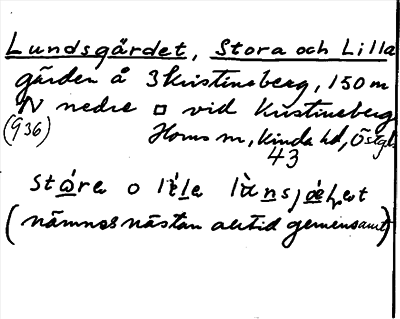 Lundsgärdet, Stora och Lilla
gärden å Kristineberg, 150 m
N nedre □ vid Kristineberg
(936) Horns sn, Kinda hd, Östgl.
43
stωra o lìla lùns
(nämnes nästan alltid gemensamt)